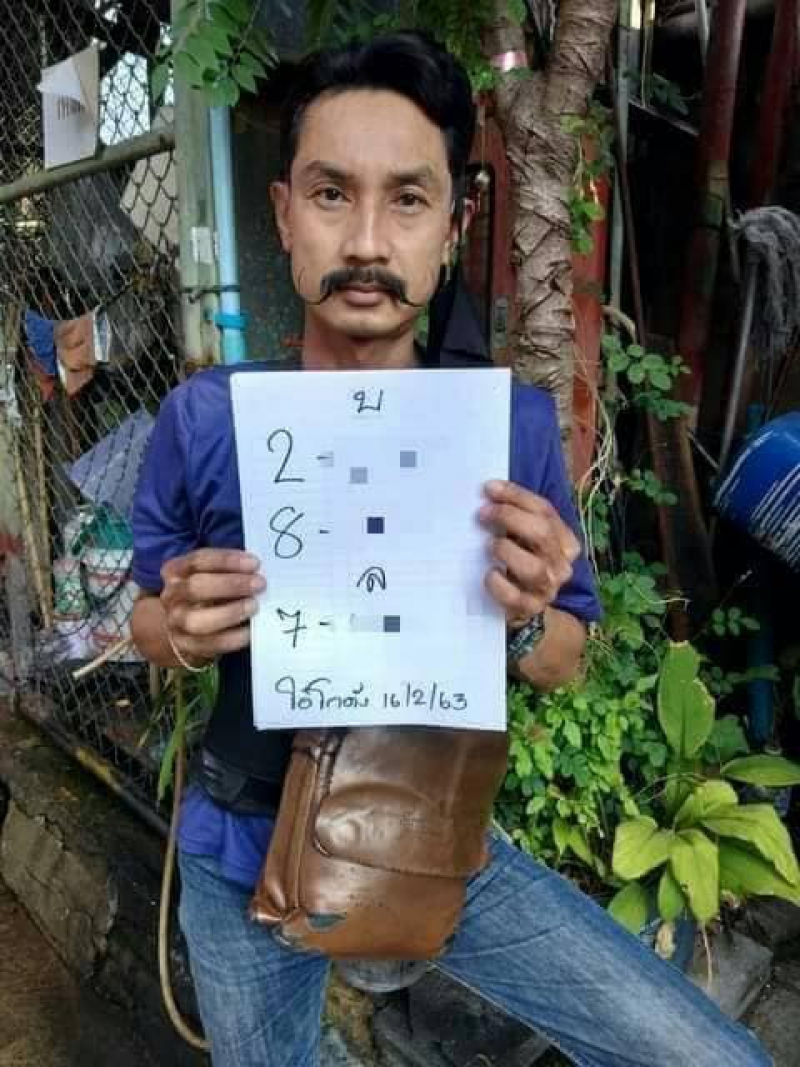 บ
2 -
8 -
ล
7 -
ใต้โกดัง 16/2/63